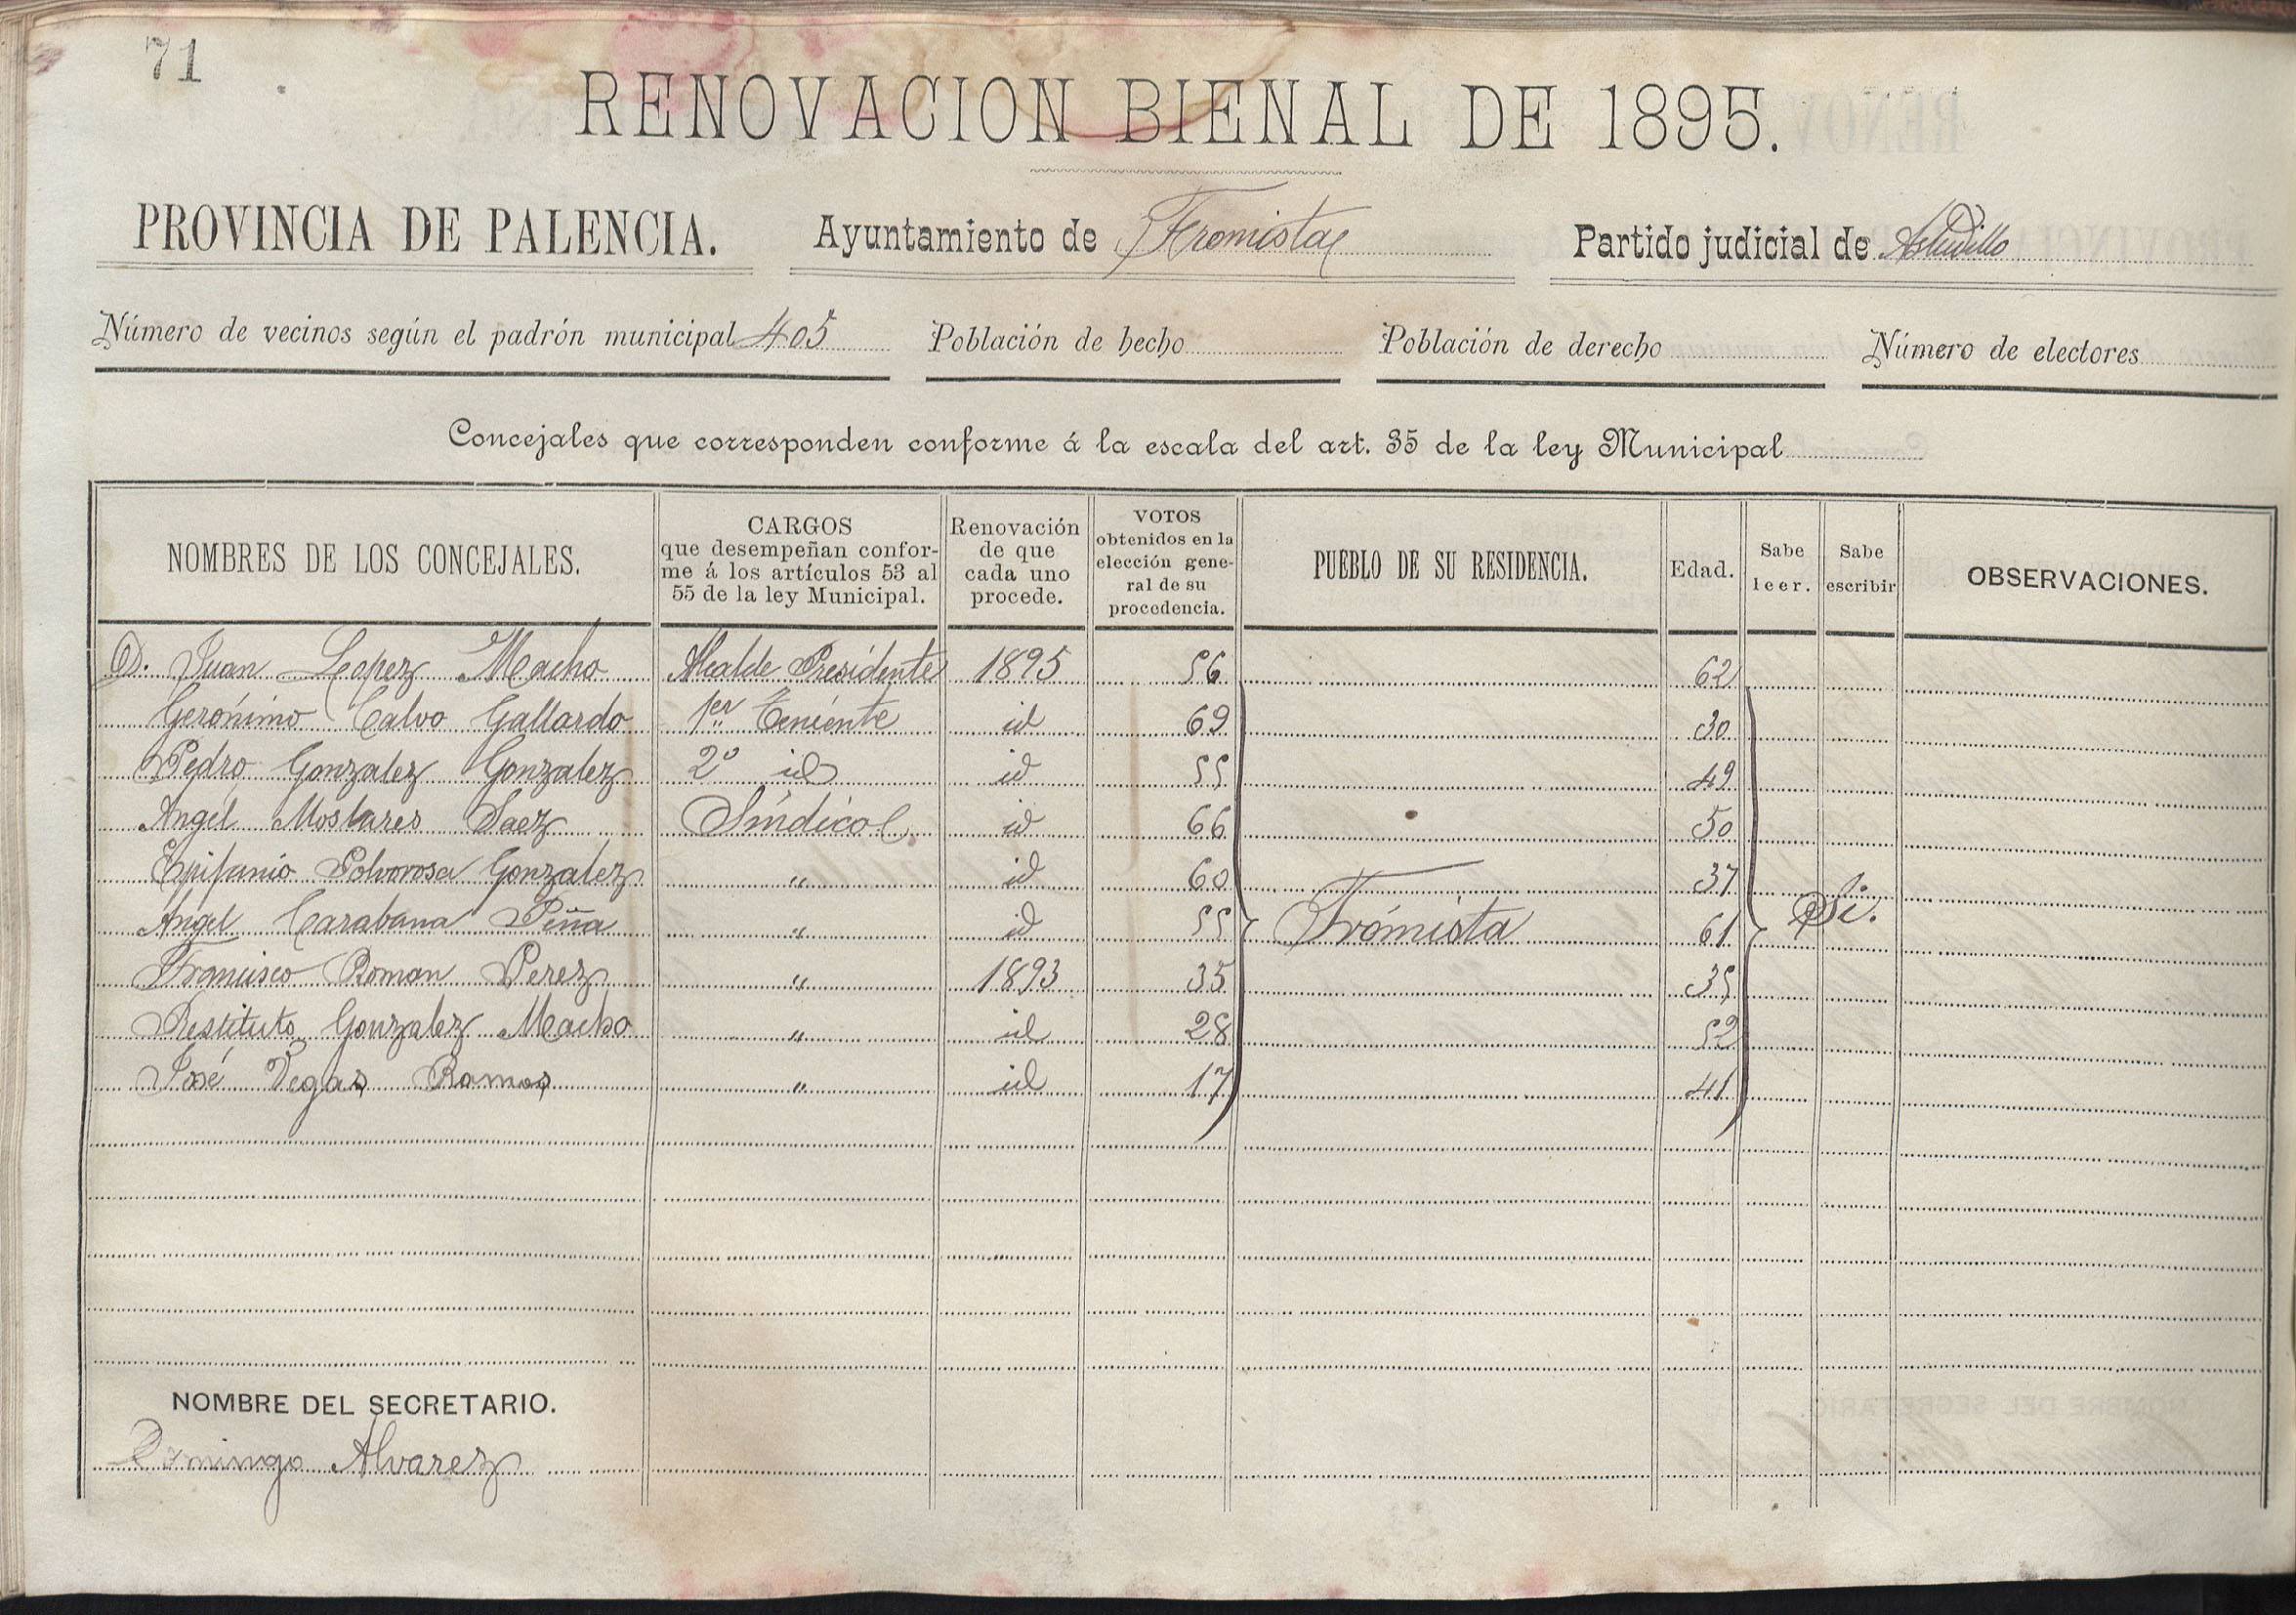 71
RENOVACION BIENAL DE 1895.
PROVINCIA DE PALENCIA. Ayuntamiento de Fromista Partido judicial de Astudillo
Número de vecinos según el padrón municipal 405 Población de hecho Población de derecho Número de electores
Concejales que corresponden conforme á la escala del art. 35 de la ley Municipal
NOMBRES DE LOS CONCEJALES. CARGOS que desempeñan confor- me á los artículos 53 al 55 de la ley Municipal. Renovación de que cada uno procede. VOTOS obtenidos en la elección gene- ral de su procedencia. PUEBLO DE SU RESIDENCIA. Edad. Sabe leer. Sabe escribir OBSERVACIONES.
D. Juan Lopez Macho Alcalde Presidente 1895 56 62
Gerónimo Calvo Gallardo 1er Teniente id 69 30
Pedro Gonzalez Gonzalez 2º id id 55 49
Angel Mostares Saez Síndico id 66 50
Epifanio Polvorosa Gonzalez " id 60 37
Angel Carabana Peña " id 55 Frómista 61 Si.
Francisco Roman Perez " 1893 35 35
Restituto Gonzalez Macho " id 28 52
José Vegas Ramos " id 17 41
NOMBRE DEL SECRETARIO.
Domingo Alvarez